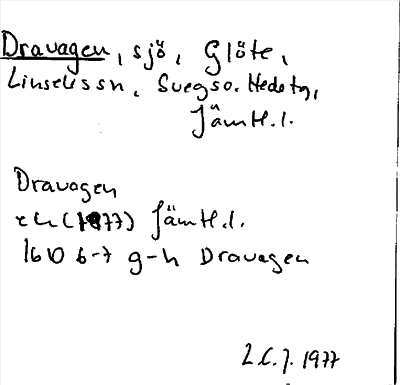 Dravagen, sjö, Glöte,
Linsells sn, Svegs o. Hede tg,
Jämtl. l.
Dravagen
ek (1977) Jämtl. l.
16D 6-7 g-h Dravagen
L.C.J. 1977